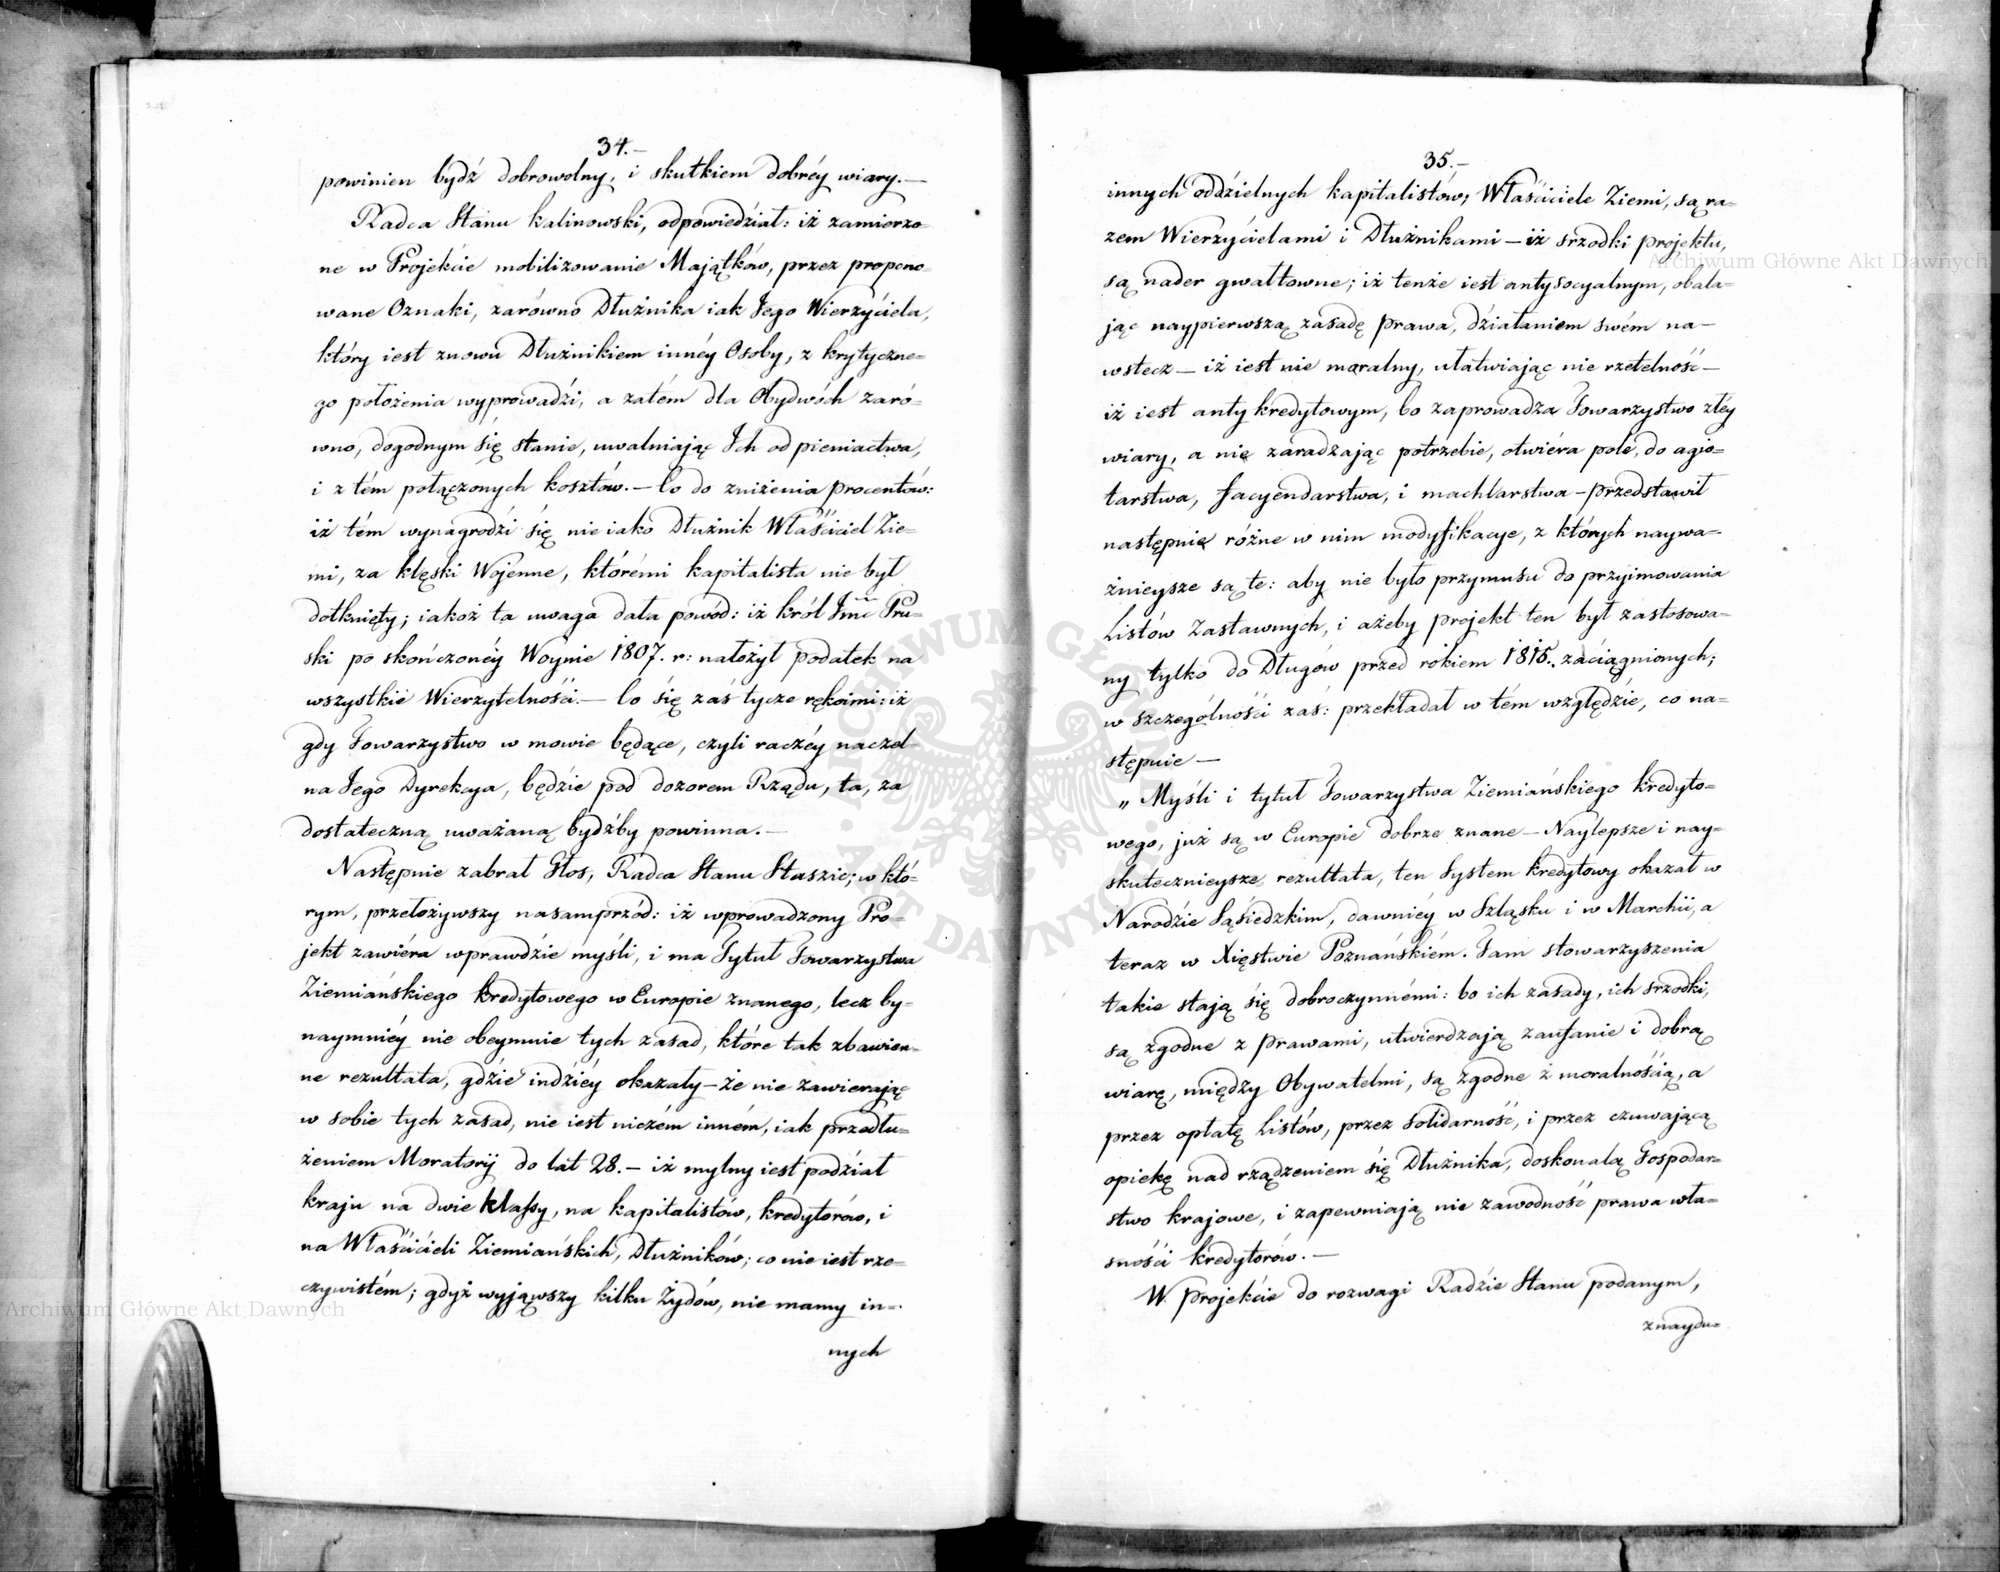 34.—
powinien bydź dobrowolny, i skutkiem dobréy wiary.—
Radca Stanu Kalinowski, odpowiedział: iż zamierzo=
ne w Projekcie mobilizowanie Majątków, przez propono=
wane Oznaki, zarówno Dłużnika iak Jego Wierzyciela,
który iest znowu Dłużnikiem innéy Osoby, z krytyczne=
go położenia wyprowadzi, a zatém dla Obydwóch zaró=
wno, dogodnym się stanie, uwalniając Ich od pieniactwa,
i z tém połączonych kosztów.— Co do zniżenia procentów:
iż tém wynagrodzi się nieiako Dłużnik Właściciel Zie=
mi, za klęski Wojenne, którémi kapitalista nie był
dotknięty; iakoż ta uwaga dała powód: iż król Jmć Pru=
ski po skończonéy Woynie 1807. r: nałożył podatek na
wszystkie Wierzytelności.— Co się zaś tycze rękoimi: iż
gdy Towarzystwo w mowie będące, czyli raczéy naczel=
na Jego Dyrekcya, będzie pod dozorem Rządu, ta, za
dostateczną uważaną bydźby powinna.—
Następnie zabrał Głos, Radca Stanu Staszic; w któ=
rym, przełożywszy nasamprzód: iż wprowadzony Pro=
jekt zawiéra wprawdzie myśli, i ma Tytuł Towarzystwa
Ziemiańskiego kredytowego w Europie znanego, lecz by=
naymniéy nie obeymuie tych zasad, które tak zbawien=
ne rezultata, gdzie indziéy okazały — że nie zawierając
w sobie tych zasad, nie iest niczém inném, iak przedłu=
żeniem Moratorij do lat 28.— iż mylny iest podział
kraju na dwie klassy, na kapitalistów, kredytorów, i
na Właścicieli Ziemiańskich, Dłużników; co nie iest rze=
czywistém; gdyż wyjąwszy kilku Żydów, nie mamy in=
nych
35.—
innych oddzielnych kapitalistów; Właściciele Ziemi, są ra=
zem Wierzycielami i Dłużnikami — iż srzodki projektu,
są nader gwałtowne; iż tenże iest antysocyalnym, obala=
jąc naypierwszą zasadę Prawa, działaniem swém na—
wstecz — iż iest nie moralny, ułatwiając nie rzetelność —
iż iest anty kredytowym, bo zaprowadza Towarzystwo złéy
wiary, a nie zaradzając potrzebie, otwiéra pole, do agio=
tarstwa, facyendarstwa, i machlarstwa — przedstawił
następnie różne w nim modyfikacye, z których naywa=
żnieysze są te: aby nie było przymusu do przyimowania
Listów Zastawnych, i ażeby projekt ten był zastosowa=
ny tylko do Długów przed rokiem 1815. zaciągnionych;
w szczególności zaś: przekładał w tém względzie, co na=
stępuie —
„ Myśli i tytuł Towarzystwa Ziemiańskiego kredyto=
wego, już są w Europie dobrze znane — Naylepsze i nay=
skutecznieysze rezultata, ten System kredytowy okazał w
Narodzie Sąsiedzkim, dawniéy w Szląsku i w Marchii, a
teraz w Xięstwie Poznańskiém. Tam stowarzyszenia
takie stają się dobroczynnémi: bo ich zasady, ich srzodki,
są zgodne z Prawami, utwierdzają zaufanie i dobrą
wiarę, między Obywatelmi, są zgodne z moralnością, a
przez opłatę Listów, przez Solidarność, i przez czuwającą
opiekę nad rządzeniem się Dłużnika, doskonalą Gospodar=
stwo krajowe, i zapewniają nie zawodność prawa wła=
sności kredytorów.—
W Projekcie do rozwagi Radzie Stanu podanym,
znaydu=
Archiwum Główne Akt Dawnych
Archiwum Główne Akt Dawnych
ARCHIWUM GŁÓWNE
AKT DAWNYCH